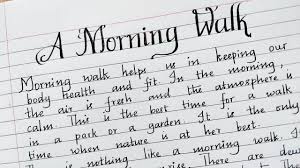 A Morning Walk
Morning walk helps us in keeping our
body health and fit. In the morning,
the air is fresh and the atmosphere is
calm. This is the best time for a walk
in a park or a garden. It is the only
time when nature is at her best.
nothing like a morning walk. I